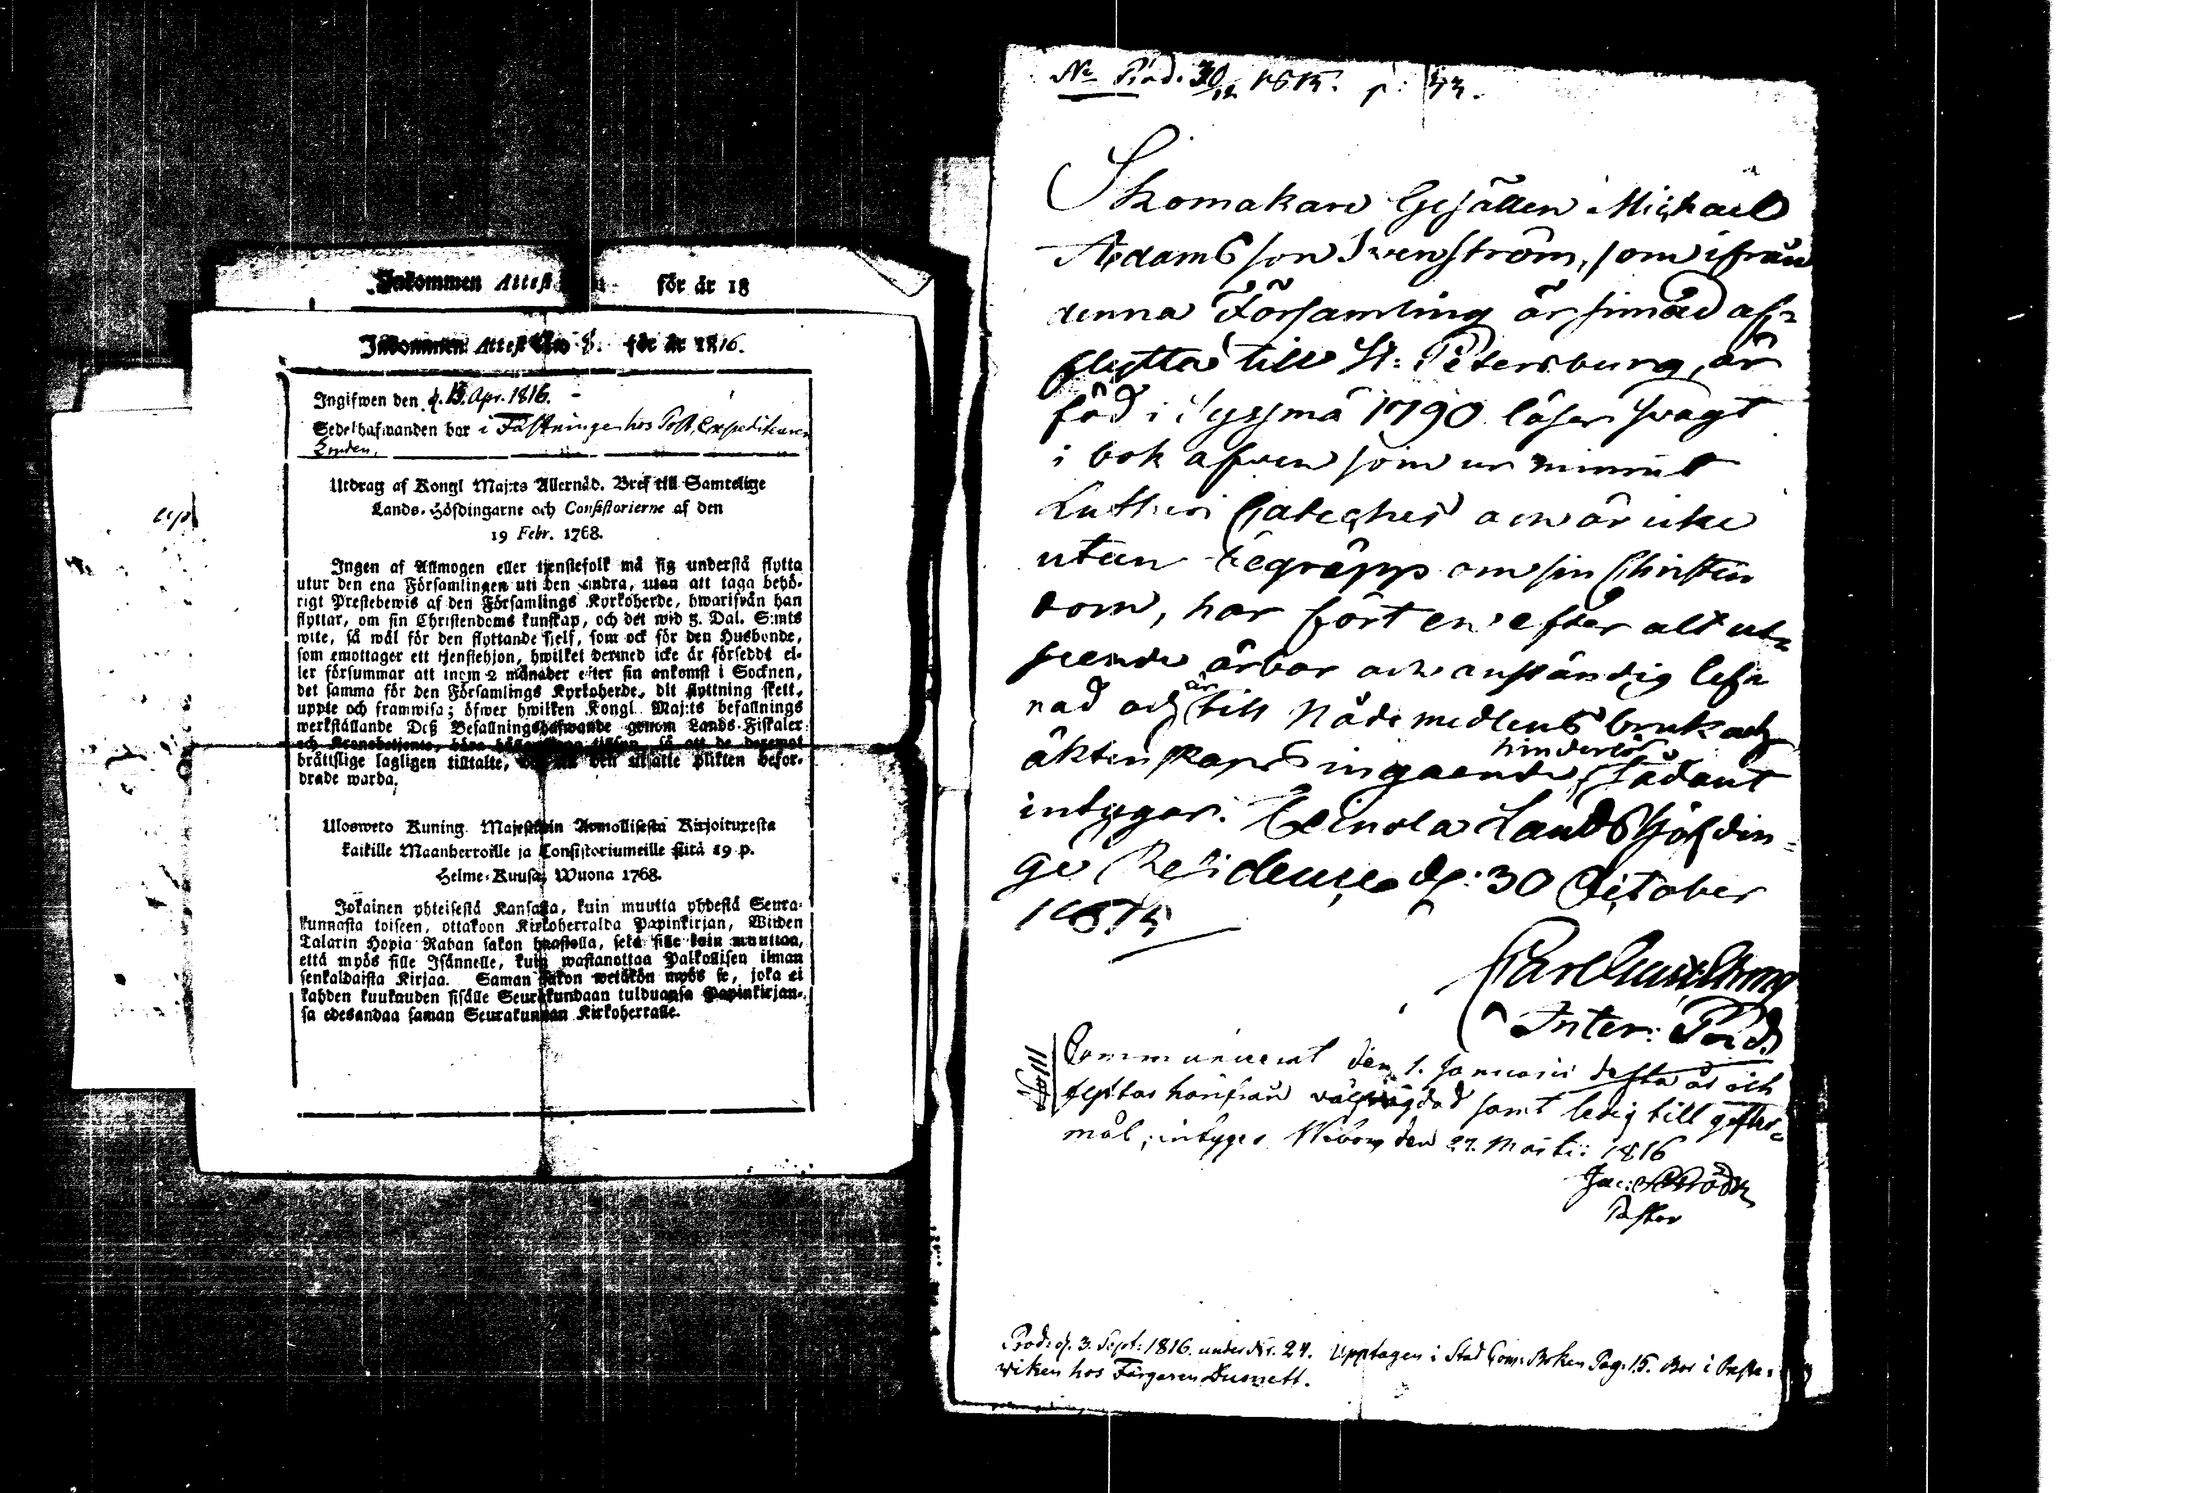 Inkommen Attest för år 18
Inkommen Attest No 8. för år 1816.
Ingifwen den d. 13. Apr. 1816.
Sedelhafwanden bor i Fästningen hos Post Expediteuren
Linden.
Utdrag af Kongl Maj:ts Allernåd. Bref till Samtelige
Lands-Höfdingarne och Consistorierne af den
19 Febr. 1768.
Ingen af Allmogen eller tjenstefolk må sig understå flytta
utur den ena Församlingen uti den andra, utan att taga behö-
rigt Prestebewis af den Församlings Kyrkoherde, hwarifrån han
flyttar, om sin Christendoms kunskap, och det wid 3. Dal. S:mts
wite, så wäl för den flyttande sjelf, som ock för den Husbonde,
som emottager ett tjenstehjon, hwilket dermed icke är försedt el-
ler försummar att inom 2 månader efter sin ankomst i Socknen,
det samma för den Församlings Kyrkoherde, dit flyttning skett,
uppte och framwisa; öfwer hwilken Kongl. Maj:ts befallnings
werkställande Deß Befallningshafwande genom Lands-Fiskaler
och Kronobetjente, böra hafwa tilsyn, så att de deremot
bråttslige lagligen tilltalte, och til den utsatte plikten befor-
drade warda.
Ulosweto Kuning. Majestetin Armollisesta Kirjoituxesta
kaikille Maanherroille ja Consistoriumeille siitä 19 p.
Helme-Kuusa, Wuona 1768.
Jokainen yhteisestä Kansasta, kuin muutta yhdestä Seura-
kunnasta toiseen, ottakoon Kirkoherralda Papinkirjan, Wiiden
Talarin Hopia Rahan sakon haastolla, sekä sille kuin muuttaa,
että myös sille Isännelle, kuin wastanottaa Palkollisen ilman
senkaldaista Kirjaa. Saman sakon wetäkön myös se, joka ei
kahden kuukauden sisälle Seurakundaan tulduansa Papinkirjan-
sa edesandaa saman Seurakunnan Kirkoherralle.
No Prod. 30/12 1815. p: 43.
Skomakare Gesällen Michael
Adamsson Svenström, som ifrån
denna Församling är sinnad af-
flytta till St: Petersburg, är
född i Syssmä 1790 läser svagt
i bok afven som ur minnet
Lutheri Cateches och är icke
utan begrepp om sin Christen
dom, har fört en efter alt ut-
seende ärbar och anständig lefn
nad och är till Nådemedlens bruk och
äktenskaps ingaende hinderlös, sådant
intygar. Heinola Landshöfdin-
ge Residence d: 30 October
1815
Inter: Præd.
No 111
Communicerat den 1. Januarii detta år och
flyttar härifrån välfrägdad samt ledig till gifter-
mål, intygas Wiborg den 27. Martii 1816
Pastor
Prod: d. 3. Sept: 1816. under No. 24. Upptagen i Stad Com: Boken Pag: 15. Bor i
wiken hos Färgaren